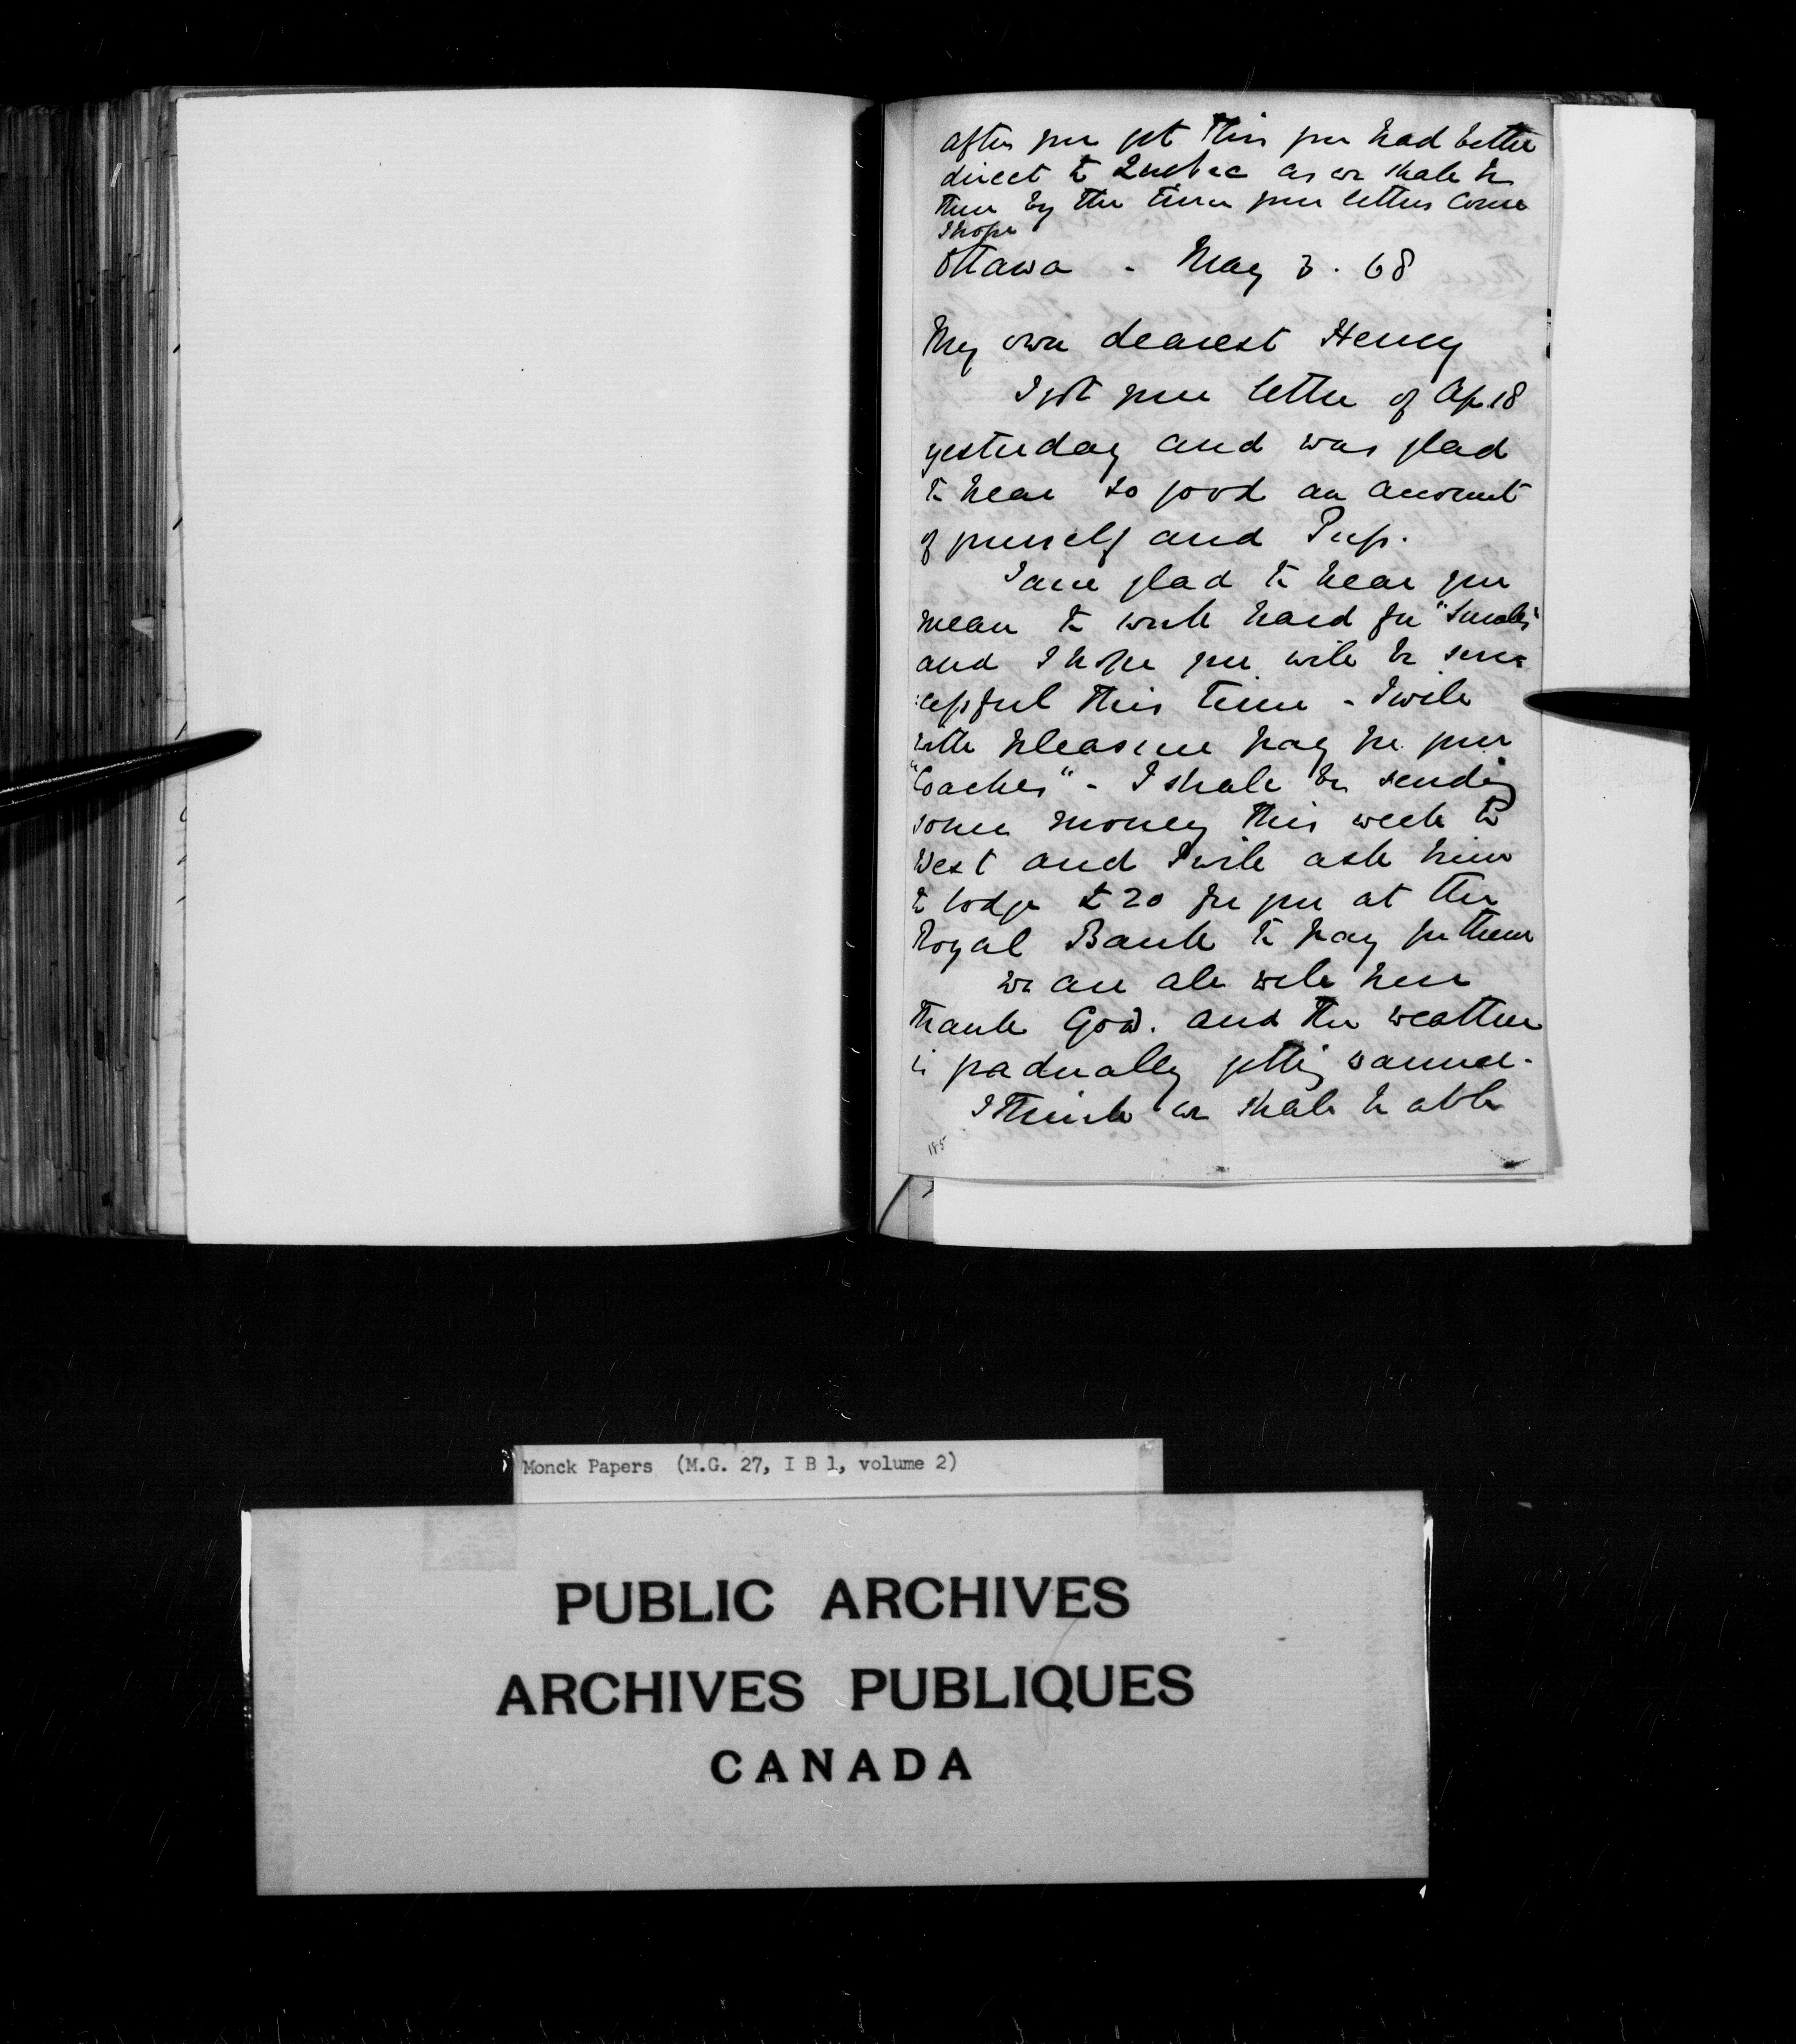 after you get this you had better
direct to Quebec as we shall be
there by the time your letters come
I hope
Ottawa - May 3. 68
My own dearest Henry
I got your letter of Ap. 18
yesterday and was glad
to hear so good an account
of yourself and Pup.
I am glad to hear you
mean to work hard for "Smalls"
and I hope you will be suc
:cessful this time - I will
with pleasure pay for your
"Coaches" - I shall be sending
some money this week to
West and I will ask him
to lodge £20 for you at the
Royal Bank to pay for them
We are all well here
thank God. and the weather
is gradually getting warmer.
I think we shall be able
185
Monck Papers (M.G. 27, I B 1, volume 2)
PUBLIC ARCHIVES
ARCHIVES PUBLIQUES
CANADA